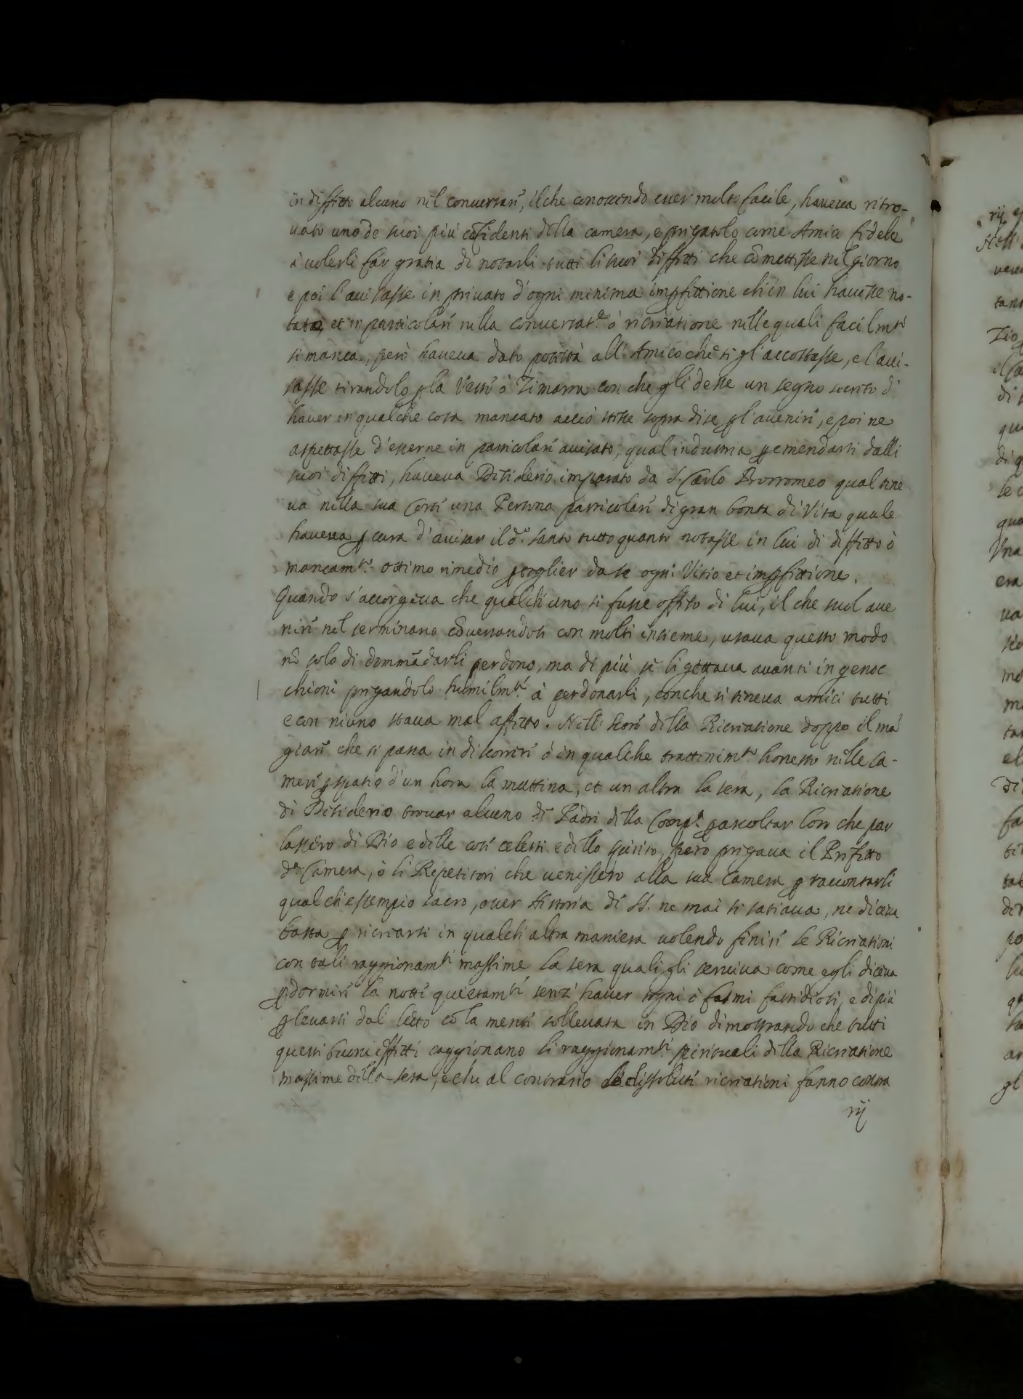 in diffetto alcuno nel conversarˢ, il che conoscendo esser molto facile, haveva ritro-
vato uno de suoi più cõfidenti della camera, e pregatolo come Amico fidele
à volerli far gratia di notarli tutti li suoi diffetti che cõmettesse nel giorno
e poi l'avisasse in privato d'ogni minima impffettione ch'in lui havesse no-
tata, et in particolarˢ nella conversatⁿᵉ ò ricreatione nelle quali facilmᵗᵉ
si manca, però haveva dato potestà all'Amico che si gl'accostasse, e l'avi-
sasse tirandolo ꝑ la Veste ò Zimarra con che gli desse un segno secreto d'
haver in qualche cosa mancato acciò stesse sopra di se ꝑ l'avenirˢ, e poi ne
aspettasse d'esserne in particolarˢ avisato, qual industria ꝑ emendarsi dalli
suoi diffetti, haveva Desiderio imparato da S. Carlo Borromeo qual tene
va nella sua Corte una Persona particolarˢ di gran bontà di Vita quale
haveva ꝑ cura d'avisar il dº santo tutto quanto notasse in lui di diffetto ò
mancamᵗº. ottimo rimedio ꝑ toglier da se ogni Vitio et impffettione.
Quando s'accorgeva che qualch'uno si fusse offeso di lui, il che suol ave
nirˢ nel seminario cõversandosi con molti insieme, usava questo modo
nõ solo di demmãdarli perdono, ma di più se li gettava avanti in genoc
chioni pregandolo humilmᵗᵉ à perdonarli, con che si teneva amici tutti
e con niuno stava mal affetto. Nell'hore della Ricreatione doppo il mã
giarˢ che si passa in discorrerˢ ò in qualche trattenimᵗº honesto nelle ca-
merˢ ꝑ spatio d'un hora la mattina, et un altra la sera, la Ricreatione
di Desiderio trovar alcuno de Padri della Compª. ꝑ ascoltar loro che par
lassero di Dio e delle cose celesti e dello spirito, però pregava il Prefetto
di Camera, ò li Repetitori che venissero alla sua Camera ꝑ raccontarli
qualch'essempio sacro, over Historia di SS. ne mai si satiava, ne diceva
basta ꝑ ricrearsi in qualch'altra maniera volendo finirˢ le Ricreationi
con tali raggionamᵗⁱ massime la sera quali gli serviva come egli diceva
ꝑ dormirˢ la notte quietamᵗᵉ senz'haver sogni ò fantasmi fastidiosi, e di più
ꝑ levarsi dal letto cõ la mente sollevata in Dio dimostrando che tutti
questi buoni effetti caggionano li raggionamᵗⁱ spirituali della Ricreatione
massime della sera, e che al contrario le dissolute ricreationi fanno contra
rij